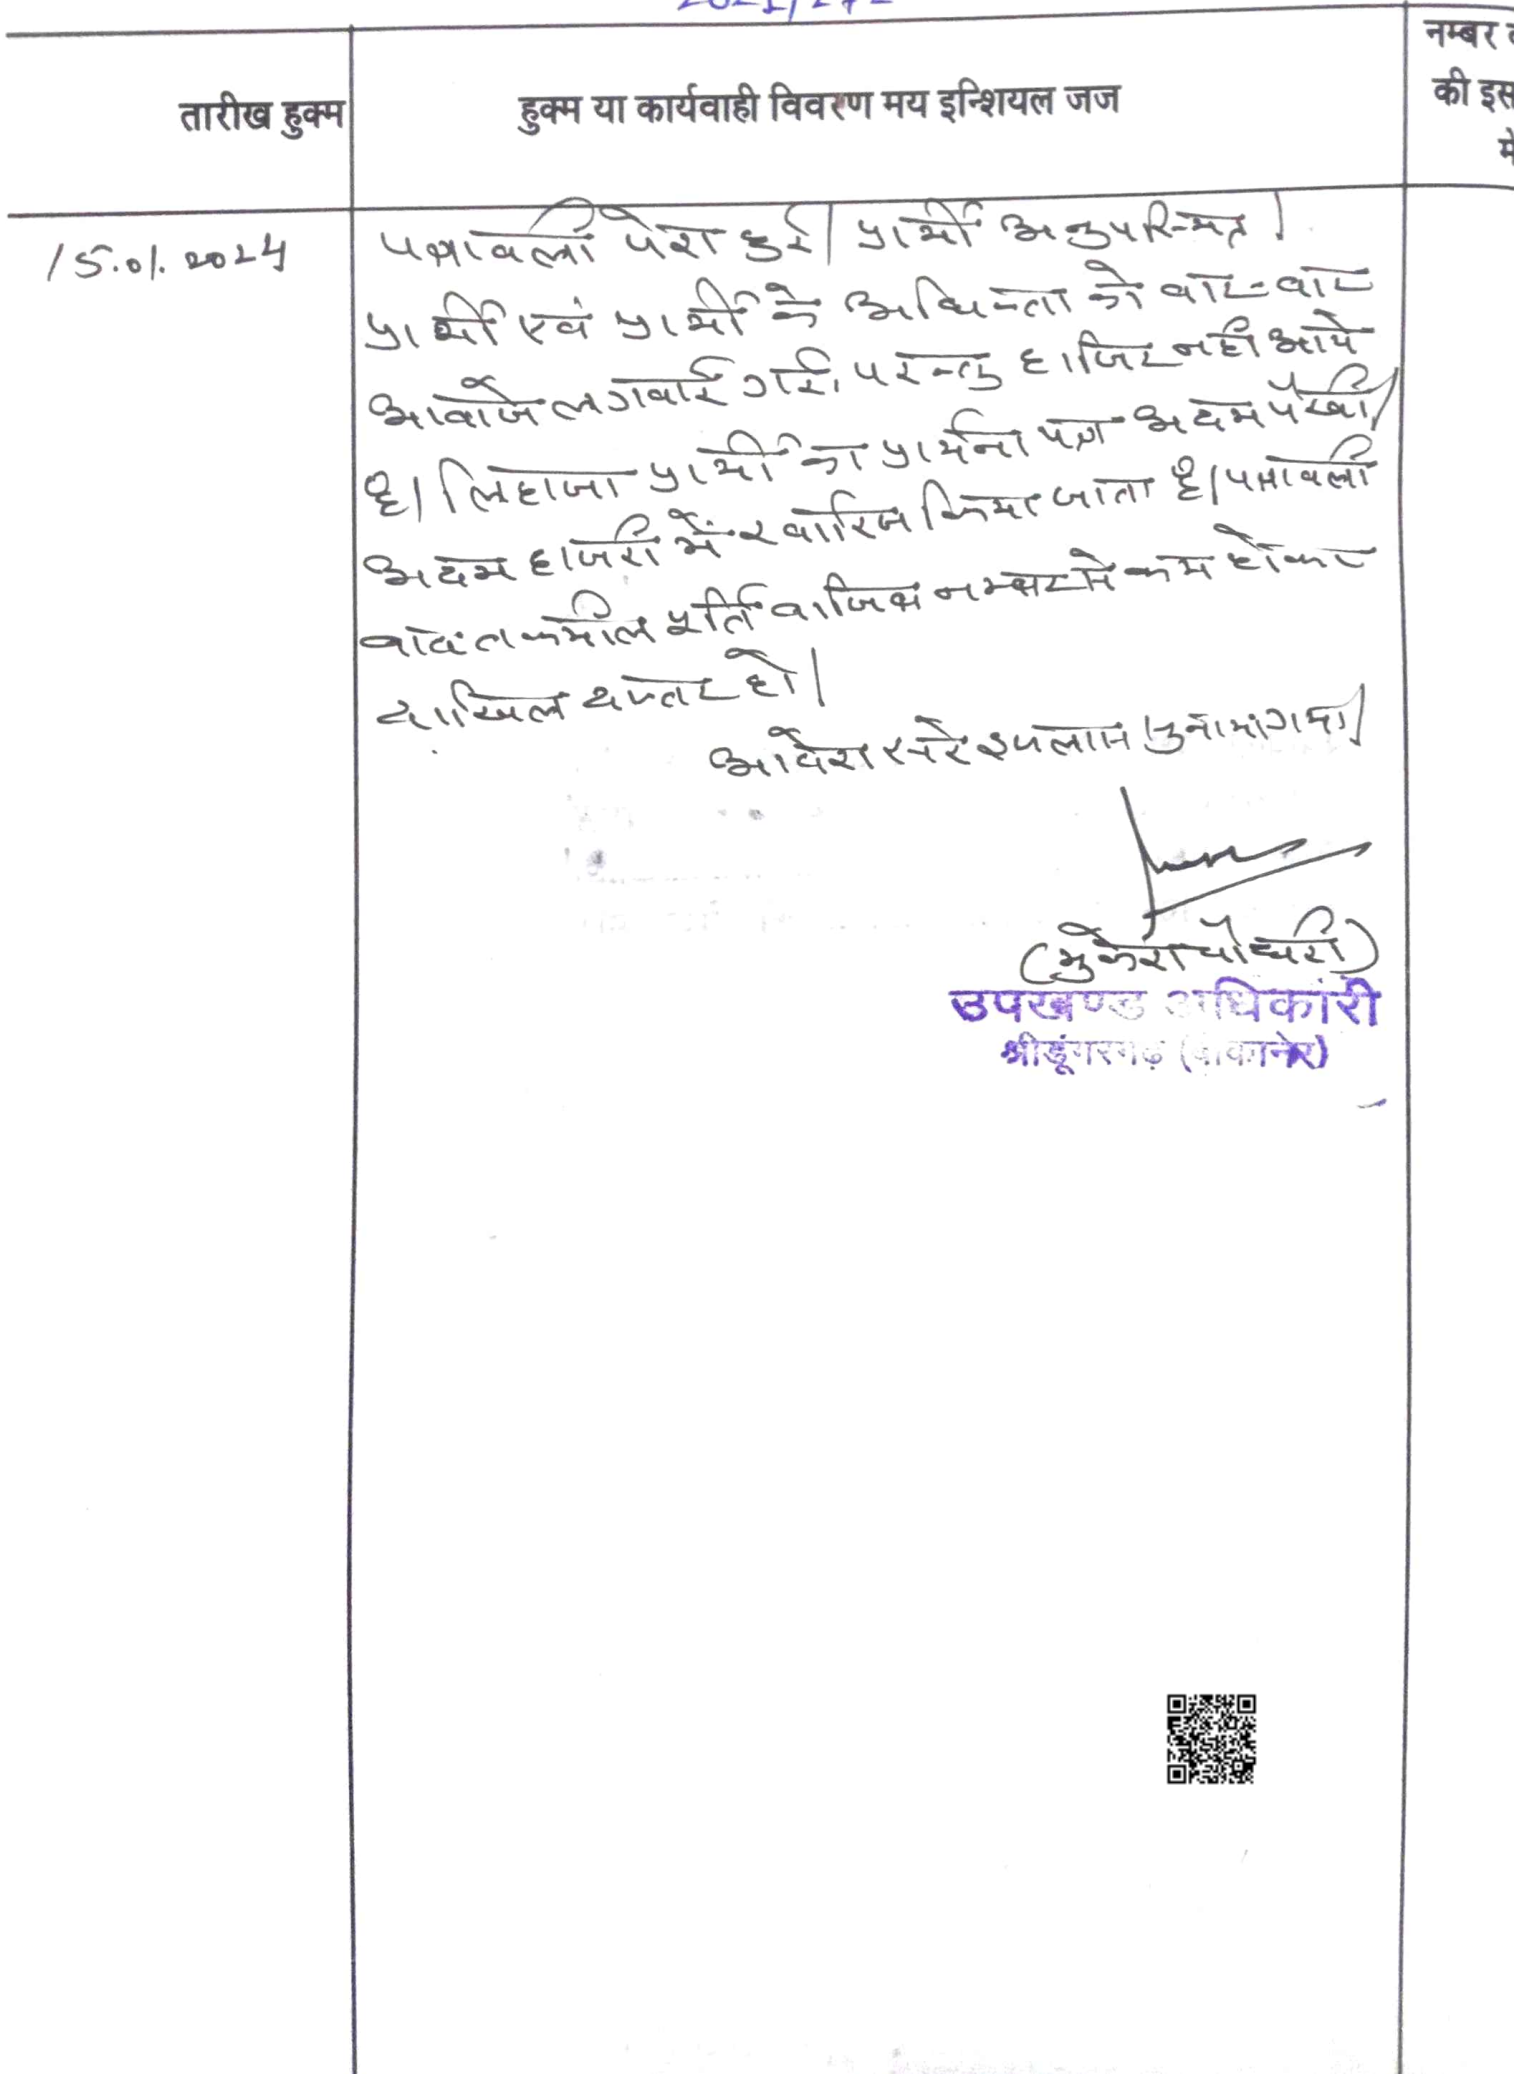 तारीख हुक्म
हुक्म या कार्यवाही विवरण मय इन्शियल जज
नम्बर
की इस
में
15.01.2024
पत्रावली पेश हुई। प्रार्थी अनुपस्थित।
प्रार्थी एवं प्रार्थी के अधिवक्ता को बार-बार
आवाजे लगवाई गई, परन्तु हाजिर नहीं आये
है। लिहाजा प्रार्थी का प्रार्थना पत्र अदम पैरवी/
अदम हाजरी में खारिज किया जाता है। पत्रावली
बाद तकमील पूर्ति वाजिब नम्बर से कम होकर
दाखिल दफ्तर हो।
आदेश सरे इजलास सुनाया गया।
(मुकेश चौधरी)
उपखण्ड अधिकारी
श्रीडूंगरगढ़ (बीकानेर)